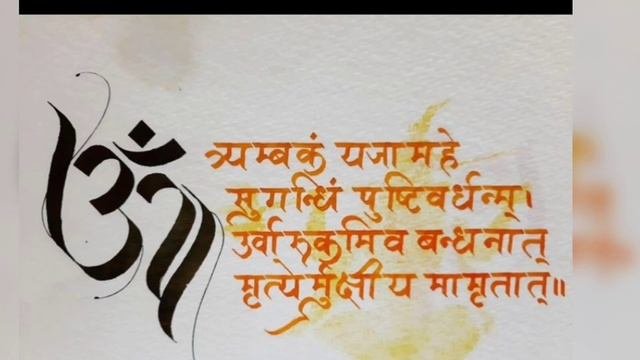 ॐ
त्र्यम्बकं यजामहे
सुगन्धिं पुष्टिवर्धन्म्।
उर्वारुकमिव बन्धनात्
मृत्येर्मुक्षीय मामृतात्॥